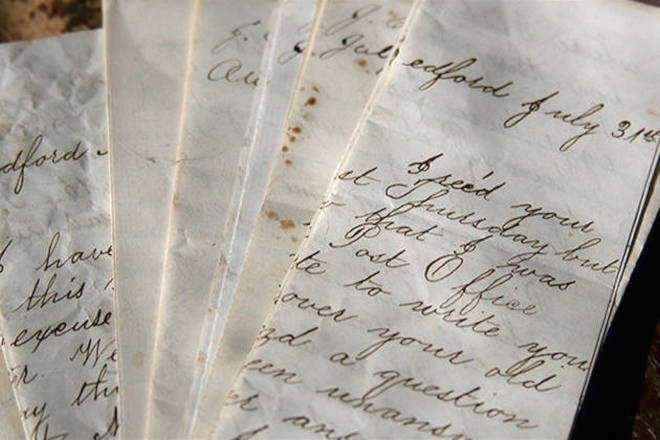 dford
I have
this
excuse
r. We
y th
J.
Au
J.
J. Jul
edford July 31st
I rec'd your
st Thursday but
that I was
Post Office
te to write you
over your old
d a question
een unans